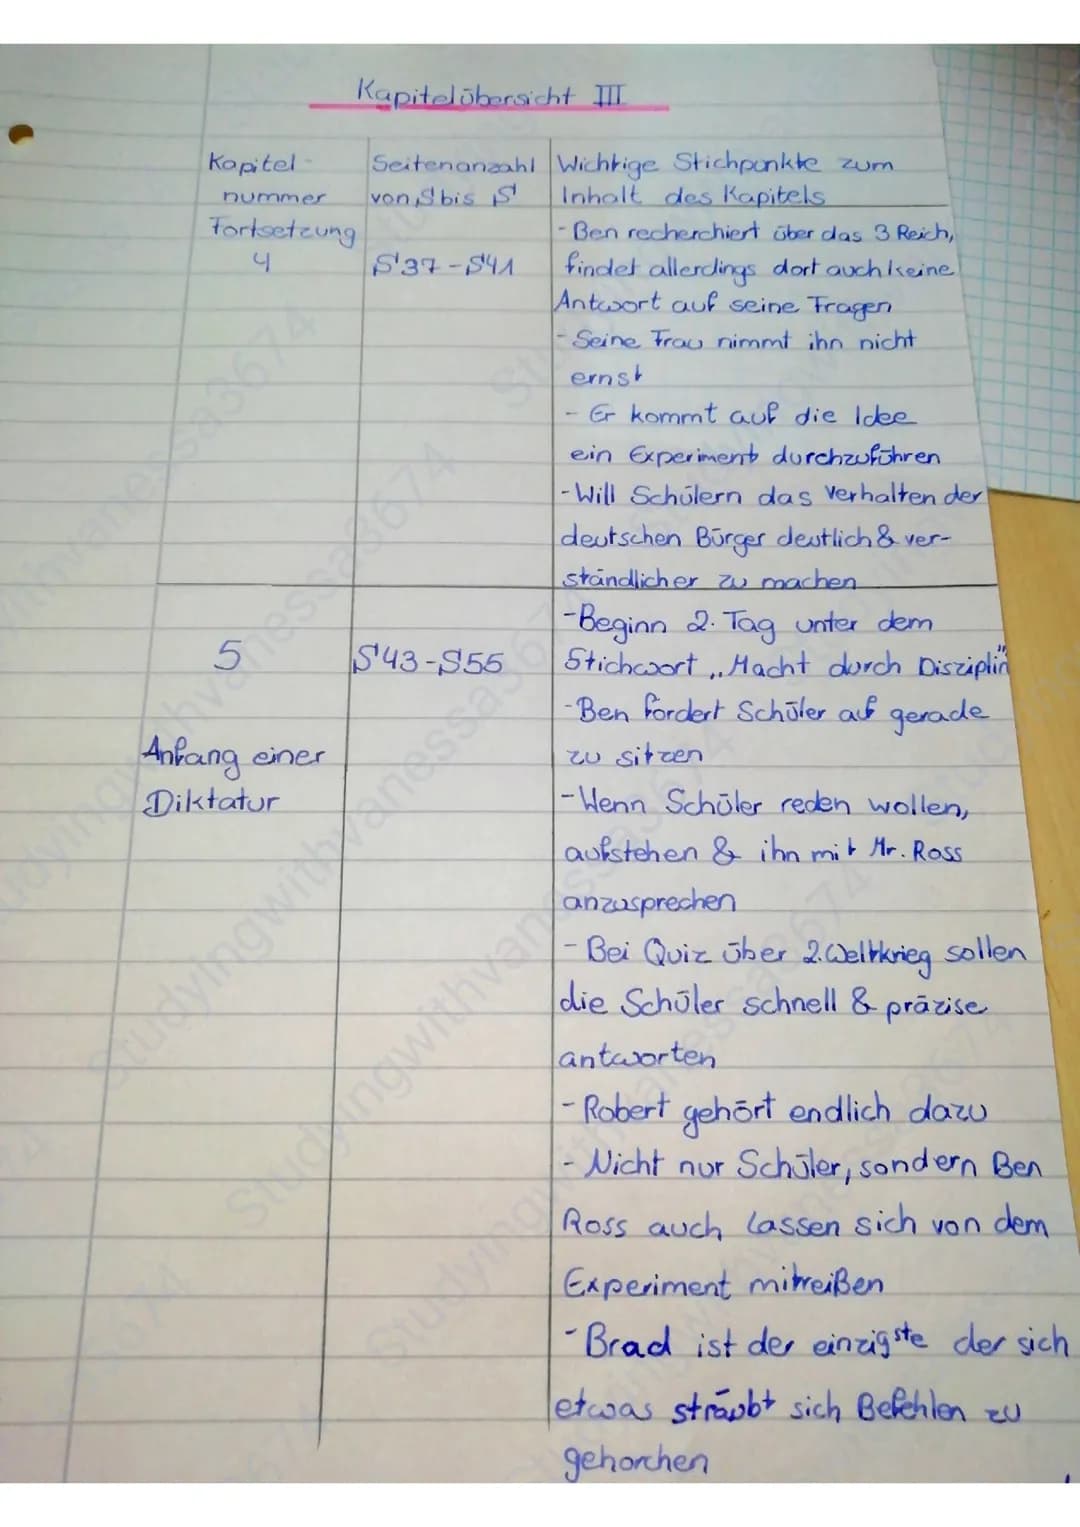 Kapitelübersicht III
Kapitel-
nummer
Seitenanzahl
von S bis S
Wichtige Stichpunkte zum
Inhalt des Kapitels
Fortsetzung
4
S37-S41
- Ben recherchiert über das 3 Reich,
findet allerdings dort auch keine
Antwort auf seine Fragen
- Seine Frau nimmt ihn nicht
ernst
- Er kommt auf die Idee
ein Experiment durchzuführen
- Will Schülern das Verhalten der
deutschen Bürger deutlich & ver-
ständlicher zu machen
5
Anfang einer
Diktatur
S43-S55
- Beginn 2. Tag unter dem
Stichwort „Macht durch Disziplin"
- Ben fordert Schüler auf gerade
zu sitzen
- Wenn Schüler reden wollen,
aufstehen & ihn mit Mr. Ross
anzusprechen
- Bei Quiz über 2.Weltkrieg sollen
die Schüler schnell & präzise
antworten
- Robert gehört endlich dazu
- Nicht nur Schüler, sondern Ben
Ross auch lassen sich von dem
Experiment mitreißen
- Brad ist der einzigste der sich
etwas sträubt sich Befehlen zu
gehorchen
studyingwithvanessa3674